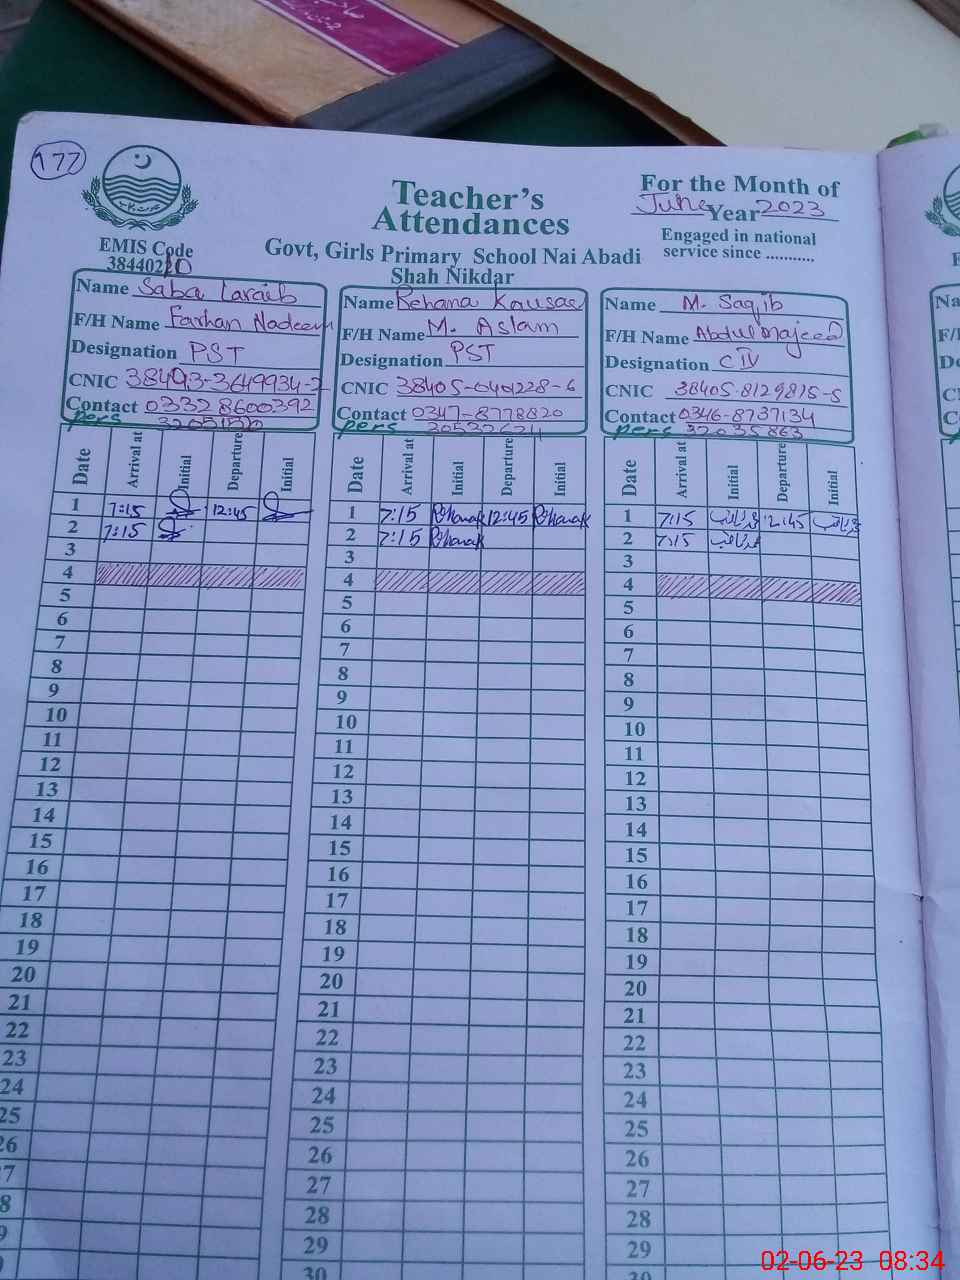 177
Teacher's
Attendances
For the Month of
June Year 2023
Engaged in national
service since ...........
EMIS Code
38440220
Govt, Girls Primary School Nai Abadi
Shah Nikdar
Name Saba Laraib
F/H Name Farhan Nadeem
Designation PST
CNIC 38493-3649934-2
Contact 03328600392
pers
Name Rehana Kausar
F/H Name M. Aslam
Designation PST
CNIC 38405-0401228-6
Contact 0347-8778820
pers
Name M. Saqib
F/H Name Abdul Majeed
Designation C IV
CNIC 38405-8129815-5
Contact 0346-8737134
pers 32035863
Date Arrival at Initial Departure Initial
1 7:15 12:45
2 7:15
3
4
5
6
7
8
9
10
11
12
13
14
15
16
17
18
19
20
21
22
23
24
25
26
Date Arrival at Initial Departure Initial
1 7:15 Rehanak 12:45 Rehanak
2 7:15 Rehanak
3
4
5
6
7
8
9
10
11
12
13
14
15
16
17
18
19
20
21
22
23
24
25
26
27
28
29
30
Date Arrival at Initial Departure Initial
1 7:15 12:45
2 7:15
3
4
5
6
7
8
9
10
11
12
13
14
15
16
17
18
19
20
21
22
23
24
25
26
27
28
29
30
02-06-23 08:34